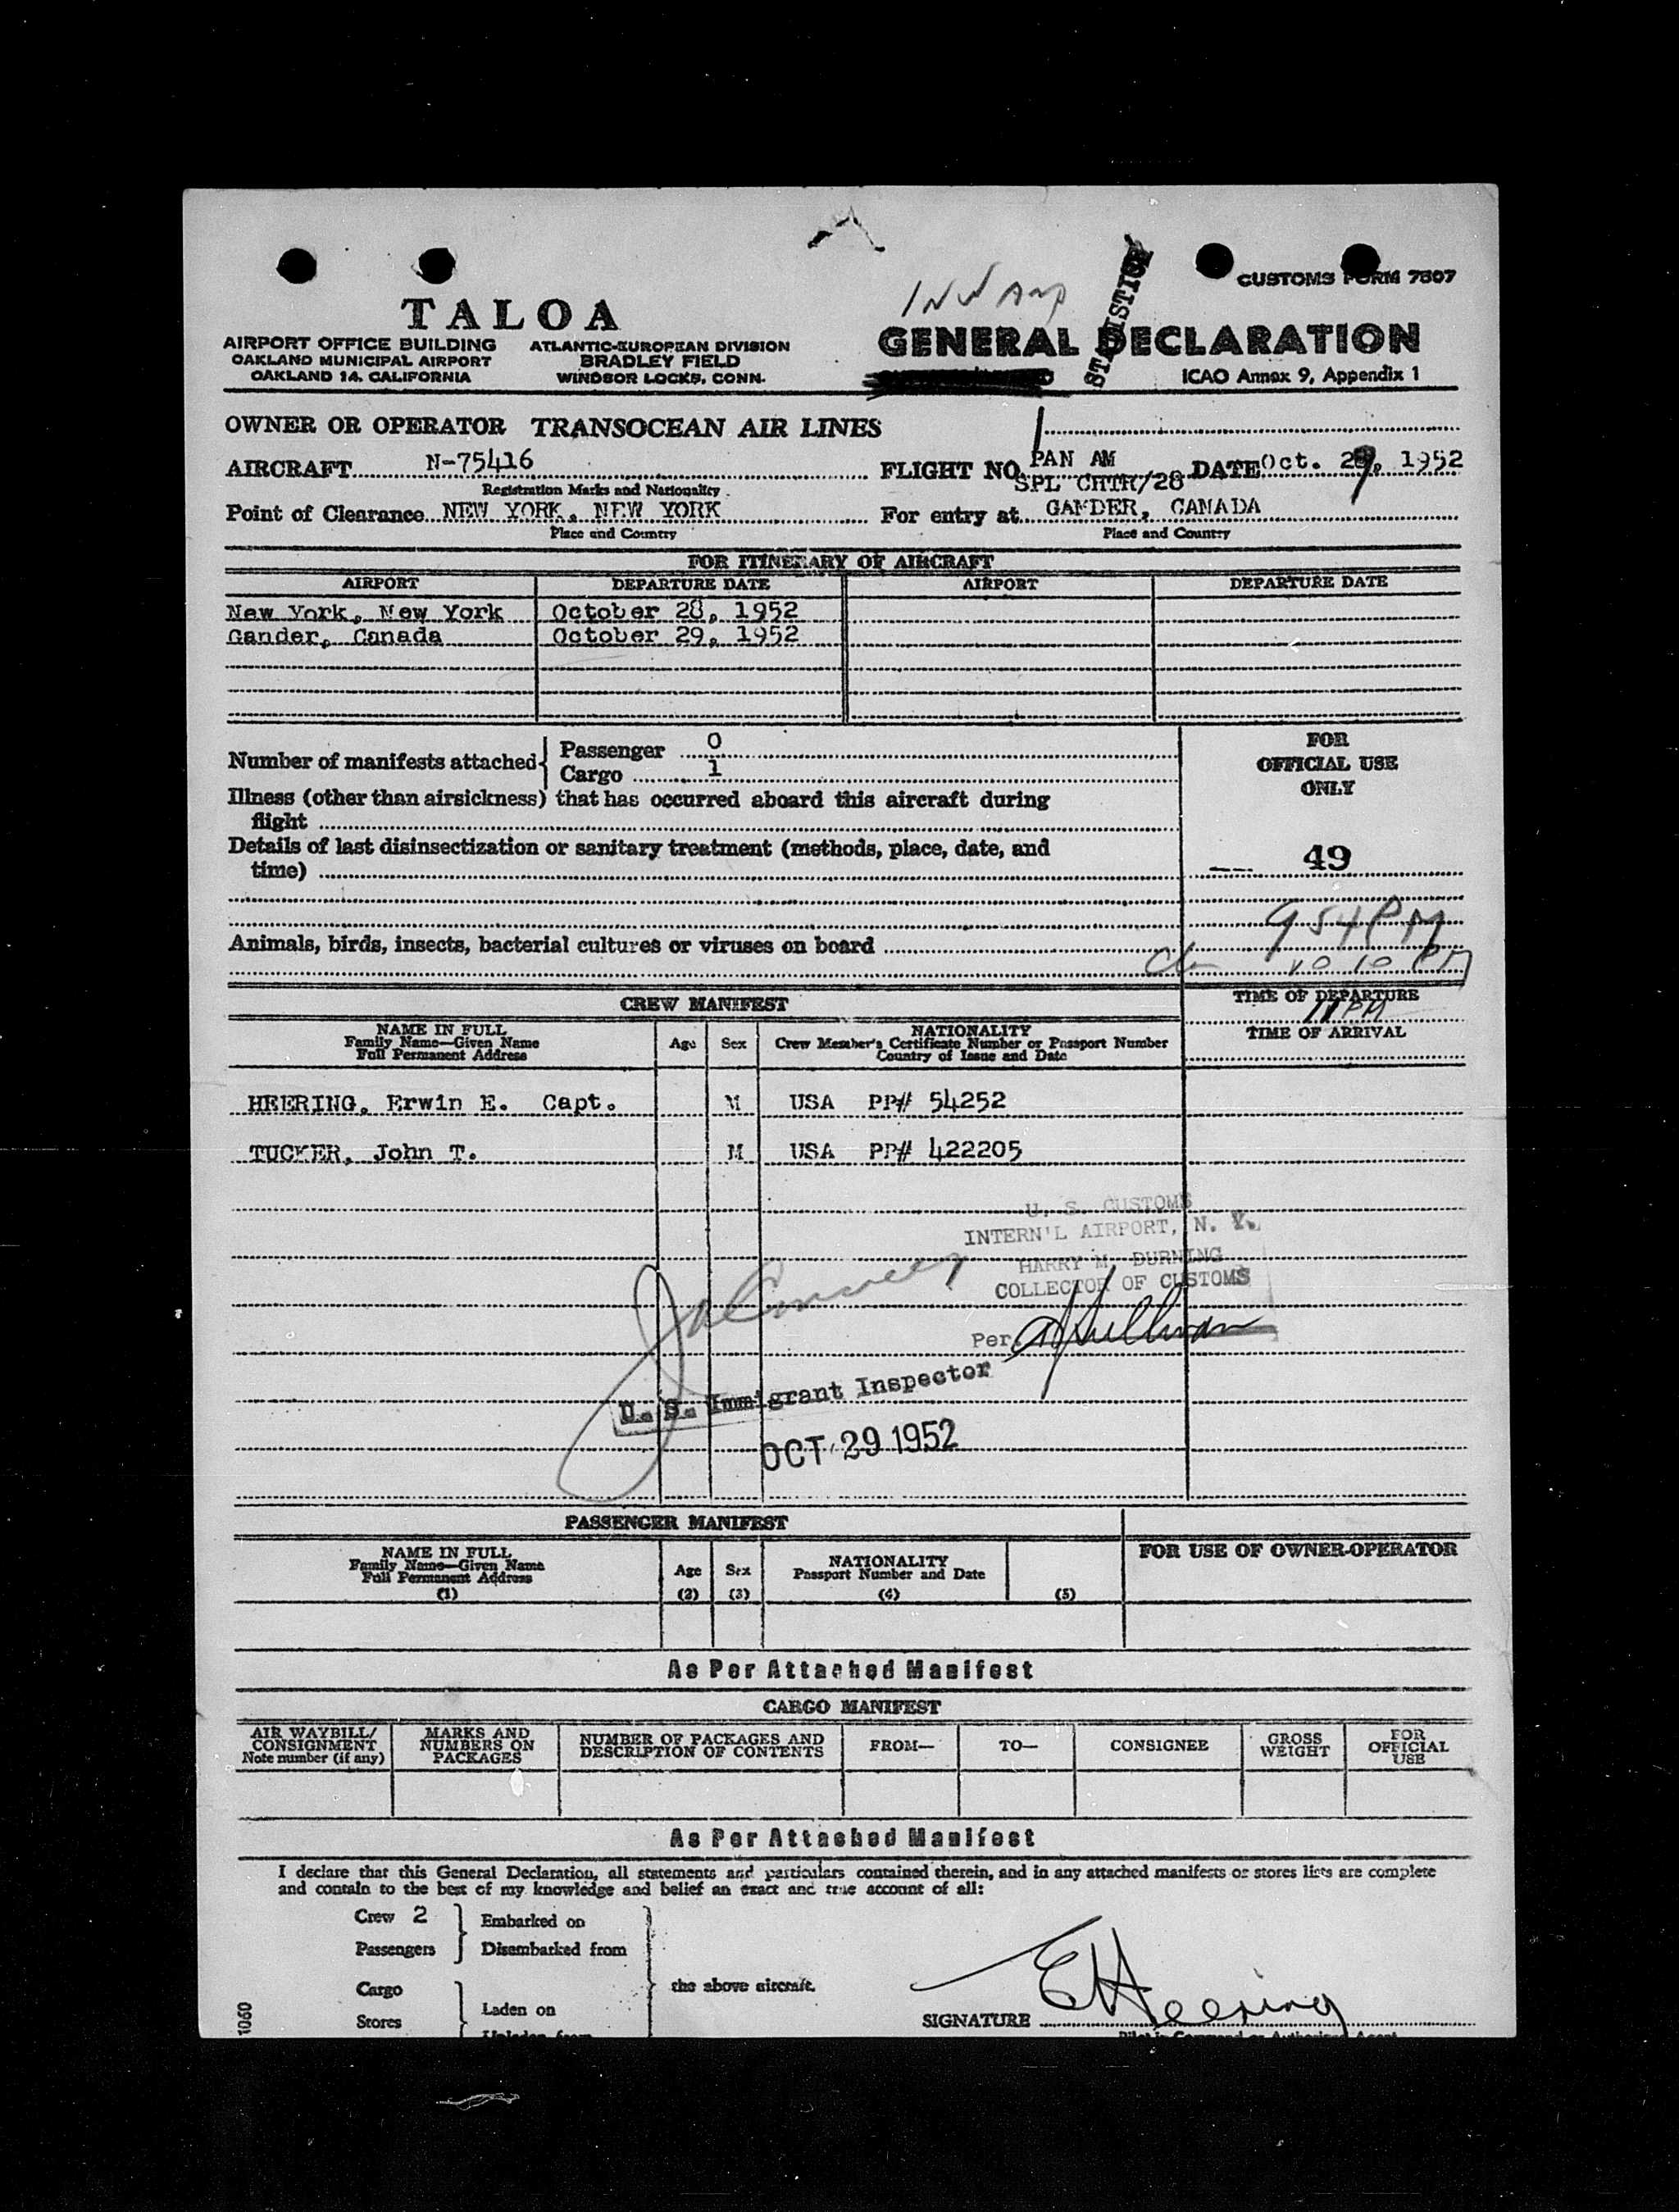 INWARD
STATISTICS
CUSTOMS FORM 7507
TALOA
AIRPORT OFFICE BUILDING
OAKLAND MUNICIPAL AIRPORT
OAKLAND 14, CALIFORNIA
ATLANTIC-EUROPEAN DIVISION
BRADLEY FIELD
WINDSOR LOCKS, CONN.
GENERAL DECLARATION
ICAO Annex 9, Appendix 1
OWNER OR OPERATOR TRANSOCEAN AIR LINES
AIRCRAFT N-75416 FLIGHT NO. PAN AM SPL CHTR/28 DATE Oct. 29, 1952
Registration Marks and Nationality
Point of Clearance NEW YORK, NEW YORK For entry at GANDER, CANADA
Place and Country Place and Country
FOR ITINERARY OF AIRCRAFT
AIRPORT DEPARTURE DATE AIRPORT DEPARTURE DATE
New York, New York October 28, 1952
Gander, Canada October 29, 1952
Number of manifests attached { Passenger 0
Cargo 1
FOR
OFFICIAL USE
ONLY
Illness (other than airsickness) that has occurred aboard this aircraft during
flight
Details of last disinsectization or sanitary treatment (methods, place, date, and
time)
49
954 PM
Animals, birds, insects, bacterial cultures or viruses on board
10 10 PM
TIME OF DEPARTURE
11 PM
TIME OF ARRIVAL
CREW MANIFEST
NAME IN FULL
Family Name—Given Name
Full Permanent Address
Age Sex
NATIONALITY
Crew Member's Certificate Number or Passport Number
Country of Issue and Date
HEERING, Erwin E. Capt. M USA PP# 54252
TUCKER, John T. M USA PP# 422205
U. S. CUSTOMS
INTERN'L AIRPORT, N. Y.
HARRY M. DURNING
COLLECTOR OF CUSTOMS
Per A Sullivan
U. S. Immigrant Inspector
OCT 29 1952
PASSENGER MANIFEST
NAME IN FULL
Family Name—Given Name
Full Permanent Address
(1)
Age
(2)
Sex
(3)
NATIONALITY
Passport Number and Date
(4)
(5)
FOR USE OF OWNER-OPERATOR
As Per Attached Manifest
CARGO MANIFEST
AIR WAYBILL/
CONSIGNMENT
Note number (if any)
MARKS AND
NUMBERS ON
PACKAGES
NUMBER OF PACKAGES AND
DESCRIPTION OF CONTENTS
FROM—
TO—
CONSIGNEE
GROSS
WEIGHT
FOR
OFFICIAL
USE
As Per Attached Manifest
I declare that this General Declaration, all statements and particulars contained therein, and in any attached manifests or stores lists are complete
and contain to the best of my knowledge and belief an exact and true account of all:
Crew 2
Passengers
Embarked on
Disembarked from
Cargo
Stores
Laden on
Unladen from
the above aircraft.
SIGNATURE E Heering
Pilot in Command or Authorized Agent
1060